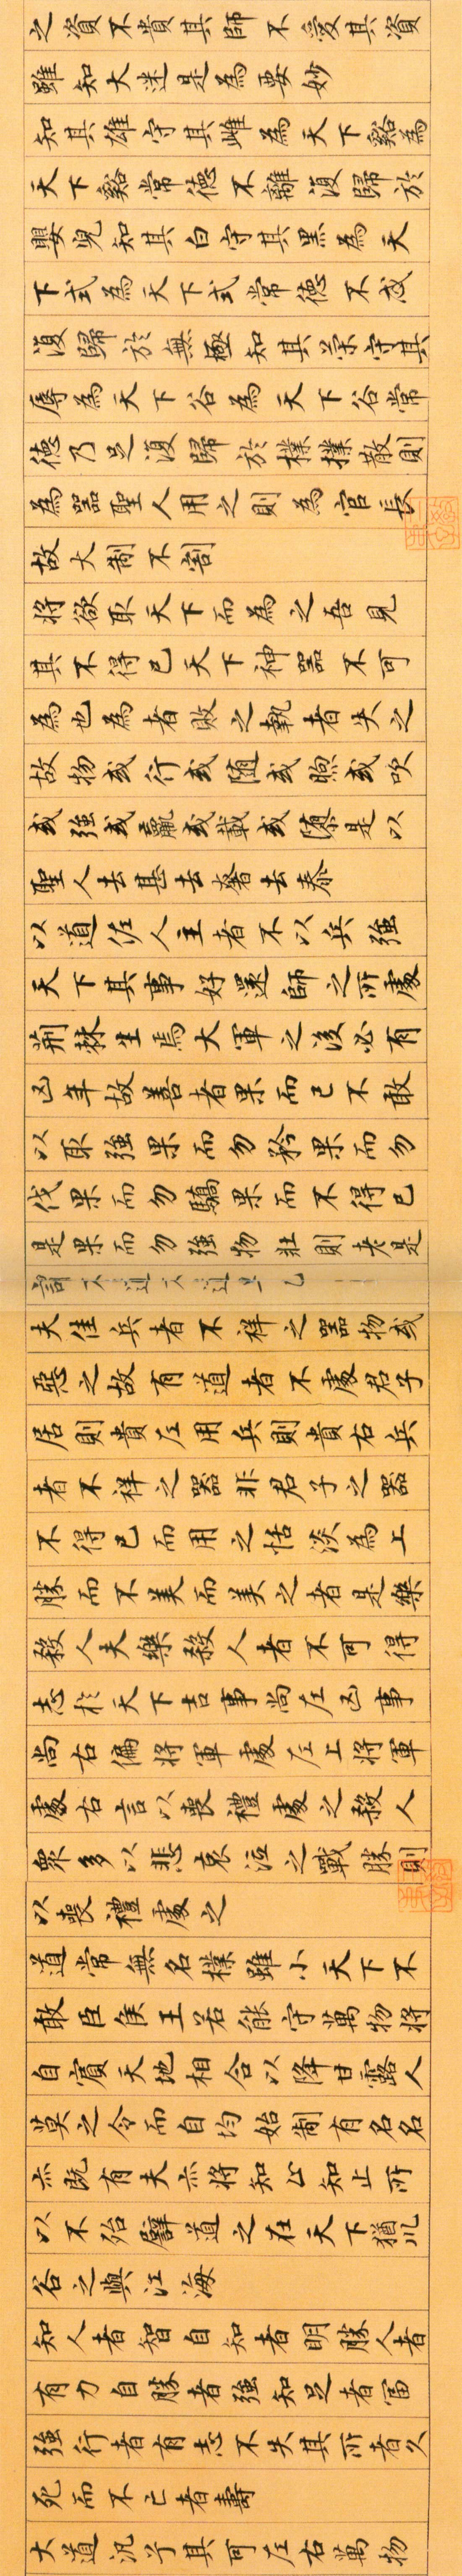 之資不貴其師不愛其資
雖知大迷是為要妙
知其雄守其雌為天下谿為
天下谿常德不離復歸於
嬰兒知其白守其黑為天
下式為天下式常德不忒
復歸於無極知其榮守其
辱為天下谷為天下谷常
德乃足復歸於樸樸散則
為器聖人用之則為官長
故大制不割
將欲取天下而為之吾見
其不得已天下神器不可
為也為者敗之執者失之
故物或行或隨或煦或吹
或強或羸或載或隳是以
聖人去甚去奢去泰
以道佐人主者不以兵強
天下其事好還師之所處
荊棘生焉大軍之後必有
凶年故善者果而已不敢
以取強果而勿矜果而勿
伐果而勿驕果而不得已
是果而勿強物壯則老是
謂不道不道早已
夫佳兵者不祥之器物或
惡之故有道者不處君子
居則貴左用兵則貴右兵
者不祥之器非君子之器
不得已而用之恬淡為上
勝而不美而美之者是樂
殺人夫樂殺人者不可得
志於天下吉事尚左凶事
尚右偏將軍處左上將軍
處右言以喪禮處之殺人
眾多以悲哀泣之戰勝則
以喪禮處之
道常無名樸雖小天下不
敢臣侯王若能守萬物將
自賓天地相合以降甘露人
莫之令而自均始制有名名
亦既有夫亦將知止知止所
以不殆譬道之在天下猶川
谷之與江海
知人者智自知者明勝人者
有力自勝者強知足者富
強行者有志不失其所者久
死而不亡者壽
大道汎兮其可左右萬物